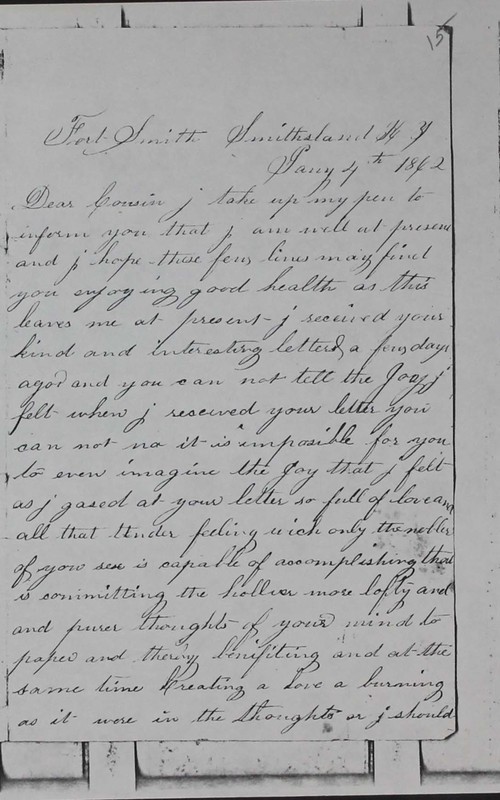 15
Fort Smith Smithsland K Y
Jany 4th 1862
Dear Cousin j take up my pen to
inform you that j am well at present
and j hope these few lines may find
you enjoying good health as this
leaves me at present j received your
kind and interesting letter a few days
ago and you can not tell the Joay j
felt when j received your letter you
can not no it is imposible for you
to even imagine the Joy that j felt
as j gased at your letter so full of love and
all that tinder feeling wich only the nobler
of your sex is capable of accomplishing that
is committing the hollier more lofty and
and purer thoughts of your mind to
paper and therby benifiting and at the
same time Kreating a love a burning
as it were in the thoughts or j should